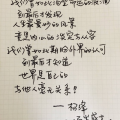 我们曾如此渴望命运的波澜
到最后才发现
人生最曼妙的风景
竟是内心的淡定与从容
我们曾如此期盼外界的认可
到最后才知道
世界是自己的
与他人毫无关系！
——杨绛